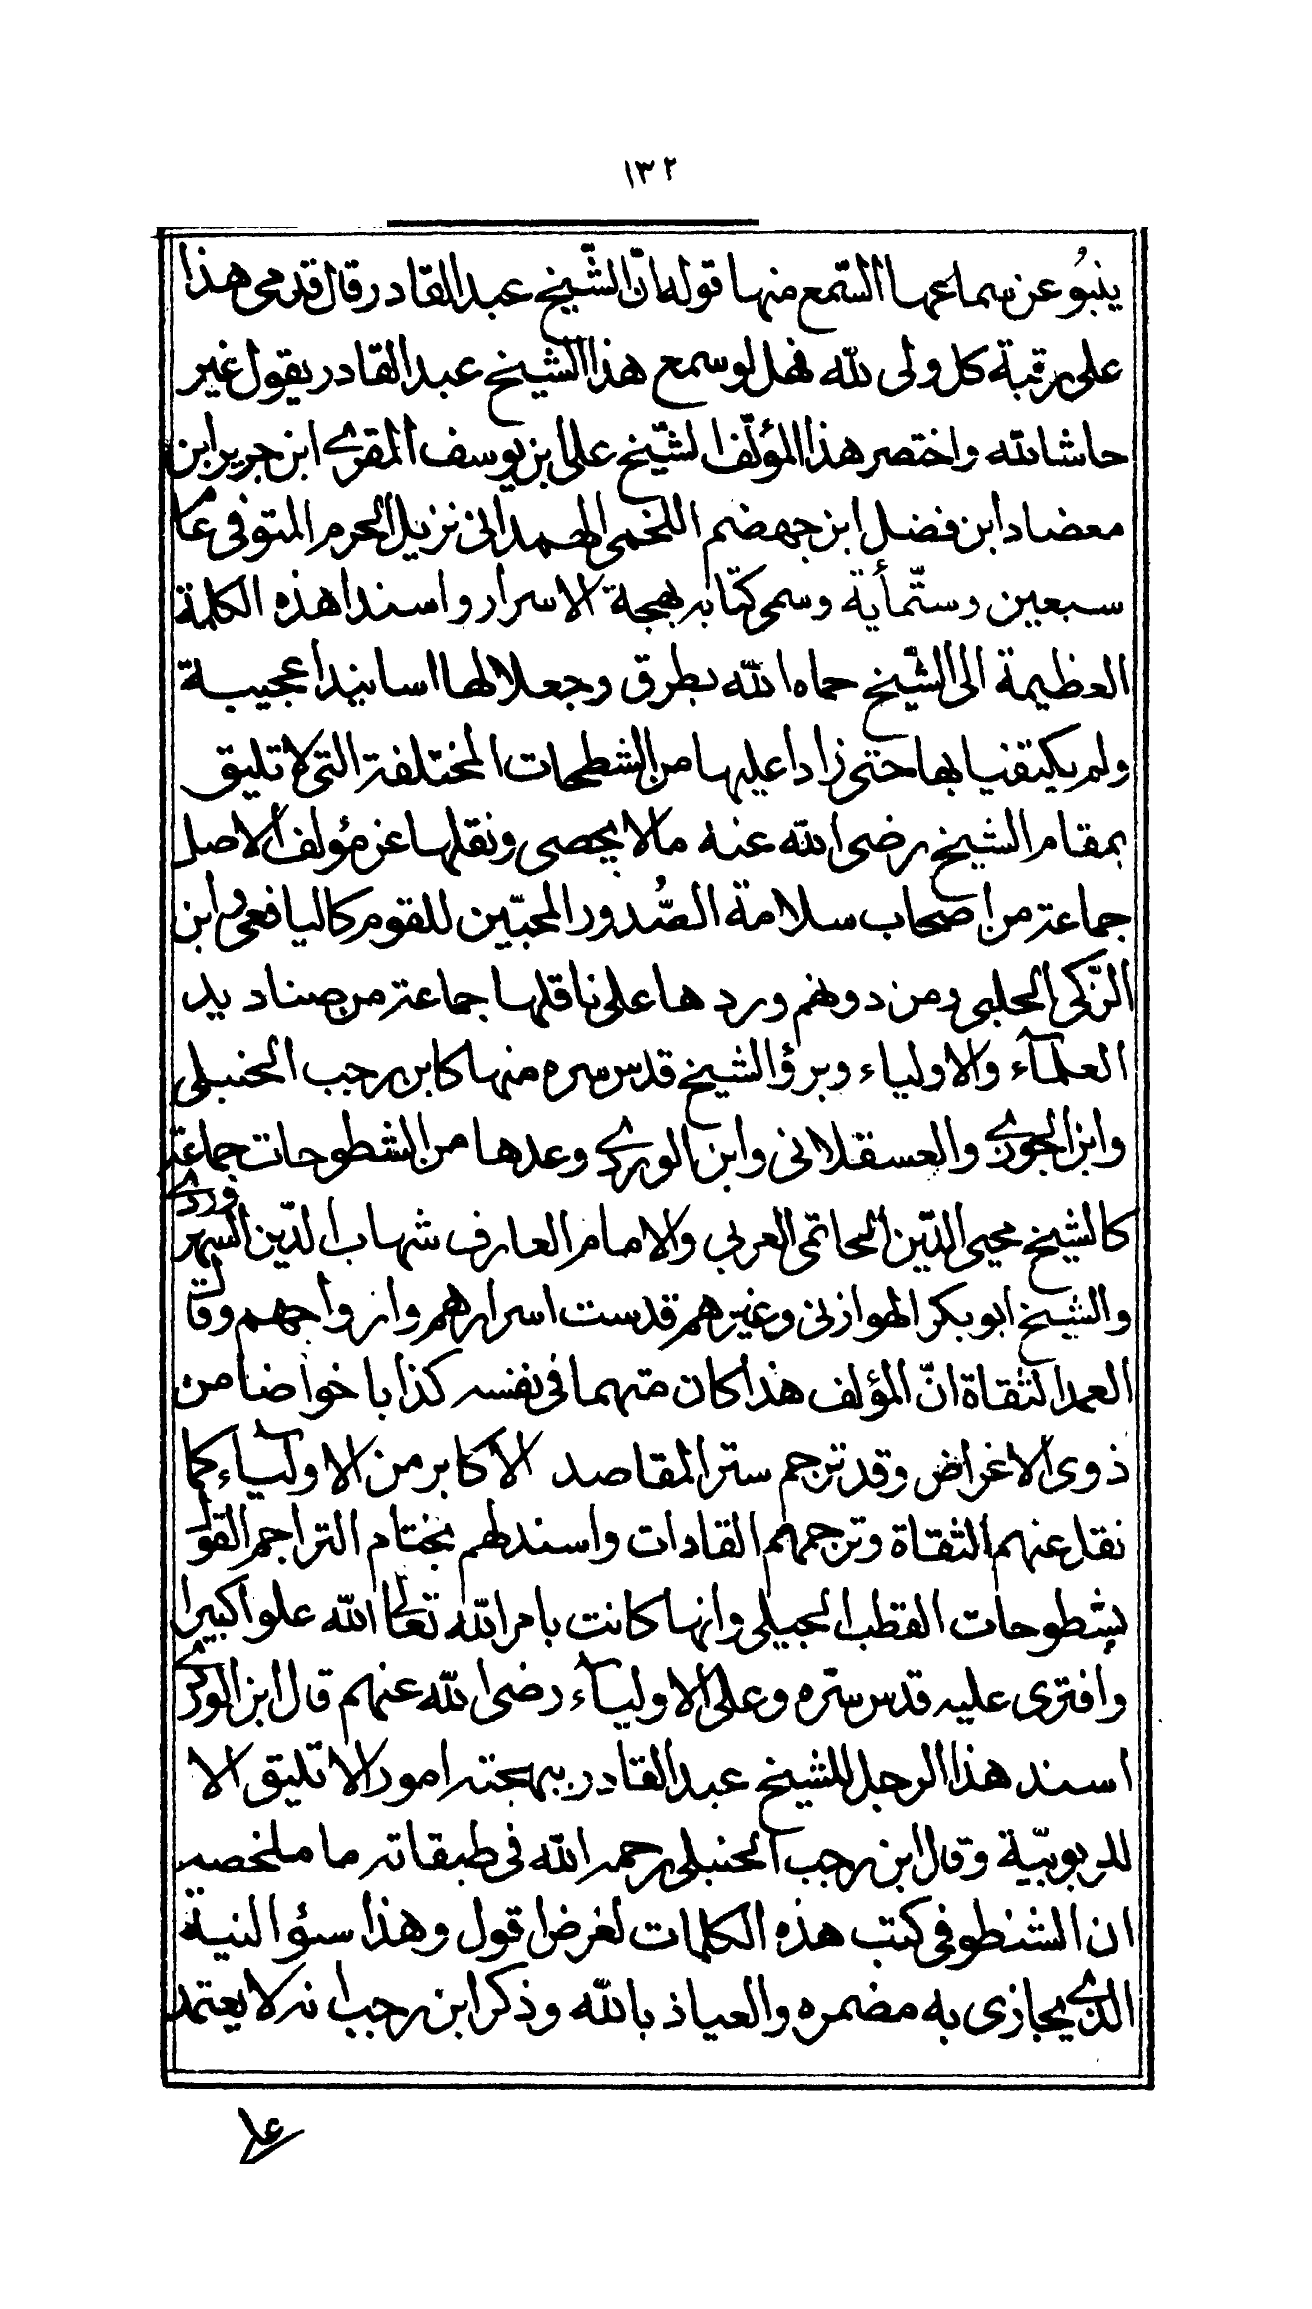 ١٣٢
ينبُو عن سماعها السّمع منها قوله انّ الشّيخ عبد القادر قال قدمى هذا
على رقبة كل ولى لله فهل لو سمع هذا الشيخ عبد القادر يقول غير
حاشا لله واختصر هذا المؤلّف الشّيخ على ابن يوسف المقرى ابن جرير ابن
معضاد ابن فضل ابن جهضم اللخمى الهمدانى نزيل الحرم المتوفى عام
سبعين وستّمأية وسمى كتابه بهجة الاسرار واسندا هذه الكلمة
العظيمة الى الشّيخ حماه الله بطرق وجعلا لها اسانيدا عجيبة
ولم يكتفيا بها حتى زادا عليها من الشطحات المختلفة التى لا تليق
بمقام الشيخ رضى الله عنه مالا يحصى ونقلها عن مؤلف الاصل
جماعة من اصحاب سلامة الصُّدور المحبّين للقوم كاليافعى وابن
الزّكى الحلبى ومن دونهم وردها على ناقلها جماعة من صناديد
العلمآء والاولياء وبرؤ الشيخ قدس سره منها كابن رجب الحنبلى
وابن الجوزى والعسقلانى وابن الوردى وعدها من الشطوحات جماعة
كالشيخ محيى الدّين الحاتمى العربى والامام العارف شهاب الدّين السهروردى
والشيخ ابو بكر الهوازنى وغيرهم قدست اسرارهم وارواحهم وقال
العمدا لثقاة انّ المؤلف هذا كان متهما فى نفسه كذابا خواضا من
ذوى الاغراض وقد ترجم سترا لمقاصد الاكابر من الاوليآء كما
نقل عنهم الثقاة وترجمهم القادات واسند لهم بختام التراجم القول
بشطوحات القطب الجيلى وانها كانت بامر الله تعالى الله علوا كبيرا
وافترى عليه قدس سرّه وعلى الاوليآء رضى الله عنهم قال ابن الوردى
اسند هذا الرجل للشيخ عبد القادر ببهجته امورا لا تليق الا
للربوبيّة وقال ابن رجب الحنبلى رحمه الله فى طبقاته ما ملخصه
ان الشنطوفى كتب هذه الكلمات لغرض اقول وهذا سؤ النية
الذى يجازى به مضمره والعياذ بالله وذكر ابن رجب انه لا يعتمد
على